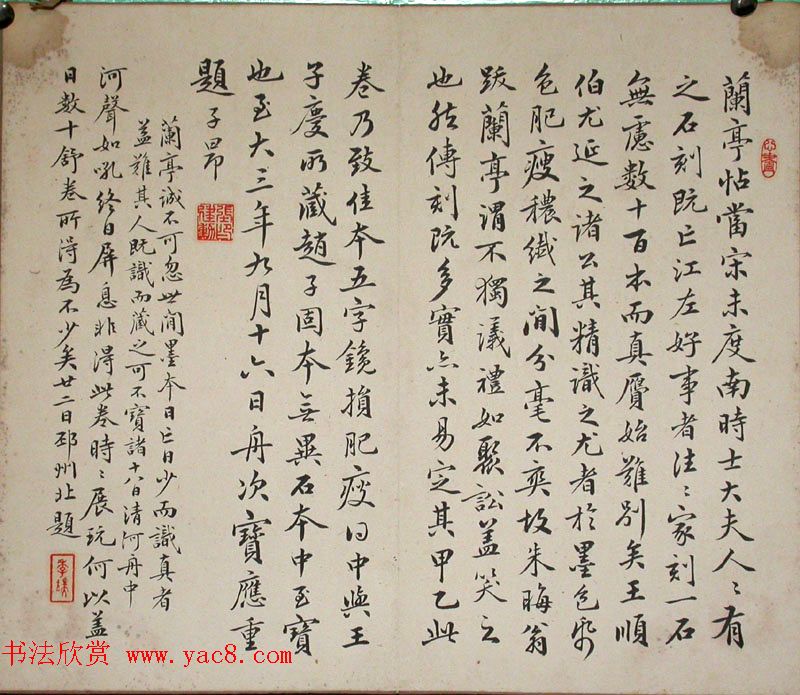 蘭亭帖當宋未度南時士大夫人〻有
之石刻既亡江左好事者往〻家刻一石
無慮數十百本而真贗始難別矣王順
伯尤延之諸公其精識之尤者於墨色紙
色肥瘦穠纖之間分毫不爽故朱晦翁
跋蘭亭謂不獨議禮如聚訟蓋笑之
也然傳刻既多實亦未易定其甲乙此
卷乃致佳本五字鑱損肥瘦得中與王
子慶所藏趙子固本無異石本中至寶
也至大三年九月十六日舟次寶應重
題子昂
蘭亭誠不可忽世間墨本日亡日少而識真者
蓋難其人既識而藏之可不寶諸十八日清河舟中
河聲如吼終日屏息非得此卷時〻展玩何以蓋
日數十舒卷所得為不少矣廿二日邳州北題
书法欣赏 www.yac8.com